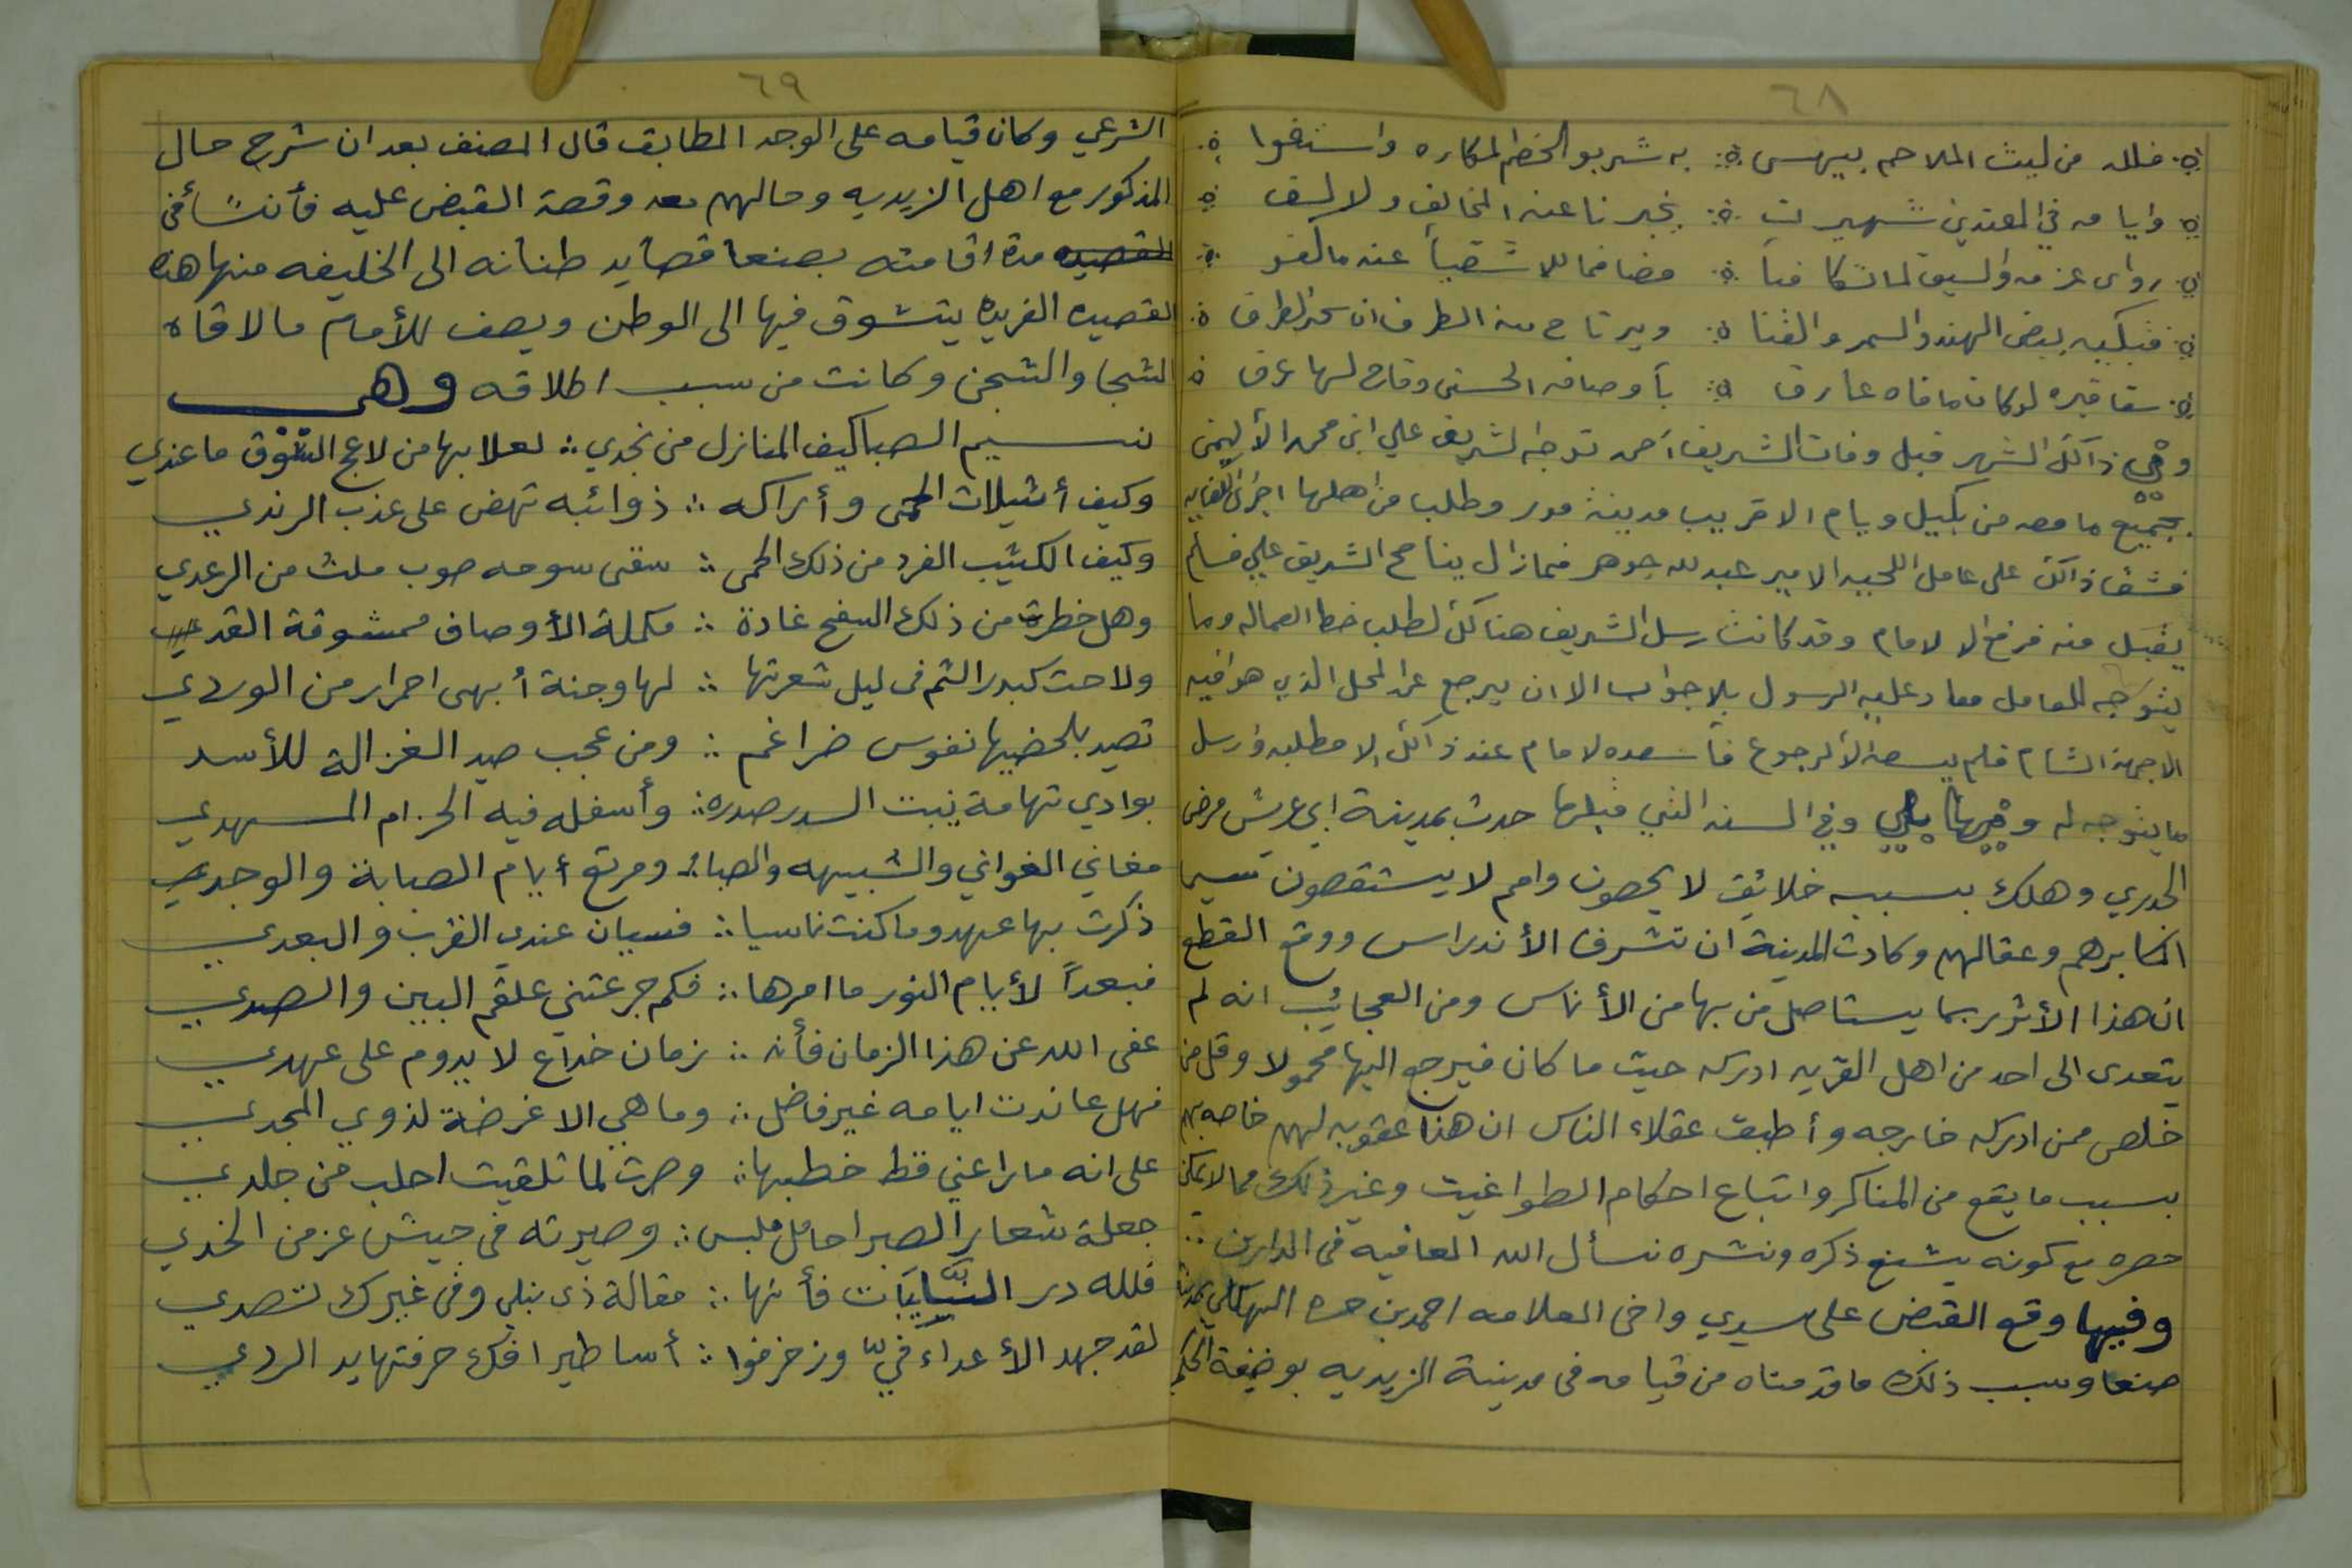 ٦٨
فلله من ليث الملاحم بيهس ؞ به شربو الخضم المكاره واستفوا
وايامه في المعتدين شهيرت ؞ يخبرنا عنه المخالف ولالسف
رواى عزمه والسيق لما تكافيا ؞ مضافما للا شقيا عنه مالفو
فتبكيه بيض الهند والسمر والقنا ؞ ويرتاح منه الطرف ان سخر الطرف
سقا قبره لوكان مافاه عارف ؞ بأوصافه الحسنى وفاح لها عرف
وفي ذالك الشهر قبل وفات الشريف احمد توجه الشريف علي ابن محمد الأ ليمن
بجميع ما معه من بكيل ويام الا قريب مدينة مور وطلب من اهلها اجرات الكفايه
فشق ذالك على عامل اللحيه الامير عبدلله جوهر فمازال يناصح الشريف علي فسلم
يقبل منه فرفع الا لامام وقد كانت رسل الشريف هنالك لطلب خط العماله وما
يتوجه للعامل فعاد عليه الرسول بلا جواب الا ان يرجع عن المحل الذي هو افيه
الا جهة الشام فلم يسعه الأ لرجوع فأسعده لامام عند ذالك الا مطلبه وارسل
ما يتوجه له وفيها وفي السنه التي قبلها حدث بمدينة ابي عريش مرض
الجدري وهلك بسببه خلائق لا يحصون وامم لا يستقصون سيما
اكابرهم وعقالهم وكادت المدينة ان تشرف الأندراس ووقع القطع
ان هذا الأثر ربما يستاصل من بها من الأناس ومن العجائب انه لم
يتعدى الى احد من اهل القريه ادركه حيث ما كان فيرجع اليها محمولا وقل من
خلص ممن ادركه خارجه وأطبق عقلاء الناس ان هذا عقوبه لهم خاصه بهم
بسبب ما يقع من المناكر واتباع احكام الطواغيت وغير ذلك مما لا يمكن
حصره مع كونه يشنع ذكره ونشره نسأل الله العافيه في الدارين ؞
وفيها وقع القبض على سيدي واخى العلامه احمد بن حسن البهكلي بمدينة
صنعا وسبب ذلك ما قدمناه من قيامه في مدينة الزيديه بوضيفة الحكم
٦٩
الشرعي وكان قيامه على الوجد المطابق قال المصنف بعد ان شرح حال
المذكور مع اهل الزيديه وحالهم معه وقصة القبض عليه فأنشأ في
القصيده مدة اقامته بصنعا قصايد طنانه الى الخليفه منها هذه
القصيده الفريده يتشوق فيها الى الوطن ويصف للأمام ما لاقاه
الشجا والشجن وكانت من سبب اطلاقه وهي
نسيم الصبا كيف المنازل من نجدي ؞ لعلا بها من لاعج الشوق ما عندي
وكيف أثيلات الحمى وأراكه ؞ ذوائبه تهض على عذب الرندي
وكيف الكثيب الفرد من ذلك الحمى ؞ سقى سوحه صوب ملث من الرعدي
وهل خطرت من ذلك السفح غادة ؞ مكملة الأوصاف ممشوقة القدي
ولاحت كبدر التم في ليل شعرتها ؞ لها وجنة أبهى احمرار من الوردي
تصيد بلحضيها نفوس ضراغم ؞ ومن عجب صيد الغزالة للأسد
بوادي تهامة ينبت السدر صدره ؞ وأسفله فيه الخزام المهدي
مغاني الغواني والشبيهه والصبا ؞ ومرتع أيام الصبابة والوجدي
ذكرت بها عهد وماكنت ناسيا ؞ فسيان عندي القرب والبعدي
فبعداً لأيام النور ما امرها ؞ فكم جرعتني علقم البين والصدي
عفى الله عن هذا الزمان فأنه ؞ زمان خداع لا يدوم على عهدي
فهل عاندت ايامه غير فاضل ؞ وما هي الا غرضة لذوي المجدي
على انه ما راعني قط خطبها ؞ وصرت لما تلقيت احلب من جلدي
جعلة شعار الصبر احامل ملبس ؞ وصيرته في جيش عزمن الخدي
فلله در النّيايبات فأنها ؞ مقالة ذي نبلي وفي غيرك تصدي
لقد جهد الأعداء فيّ وزخرفوا ؞ أساطير افك حرفتها يد الردي